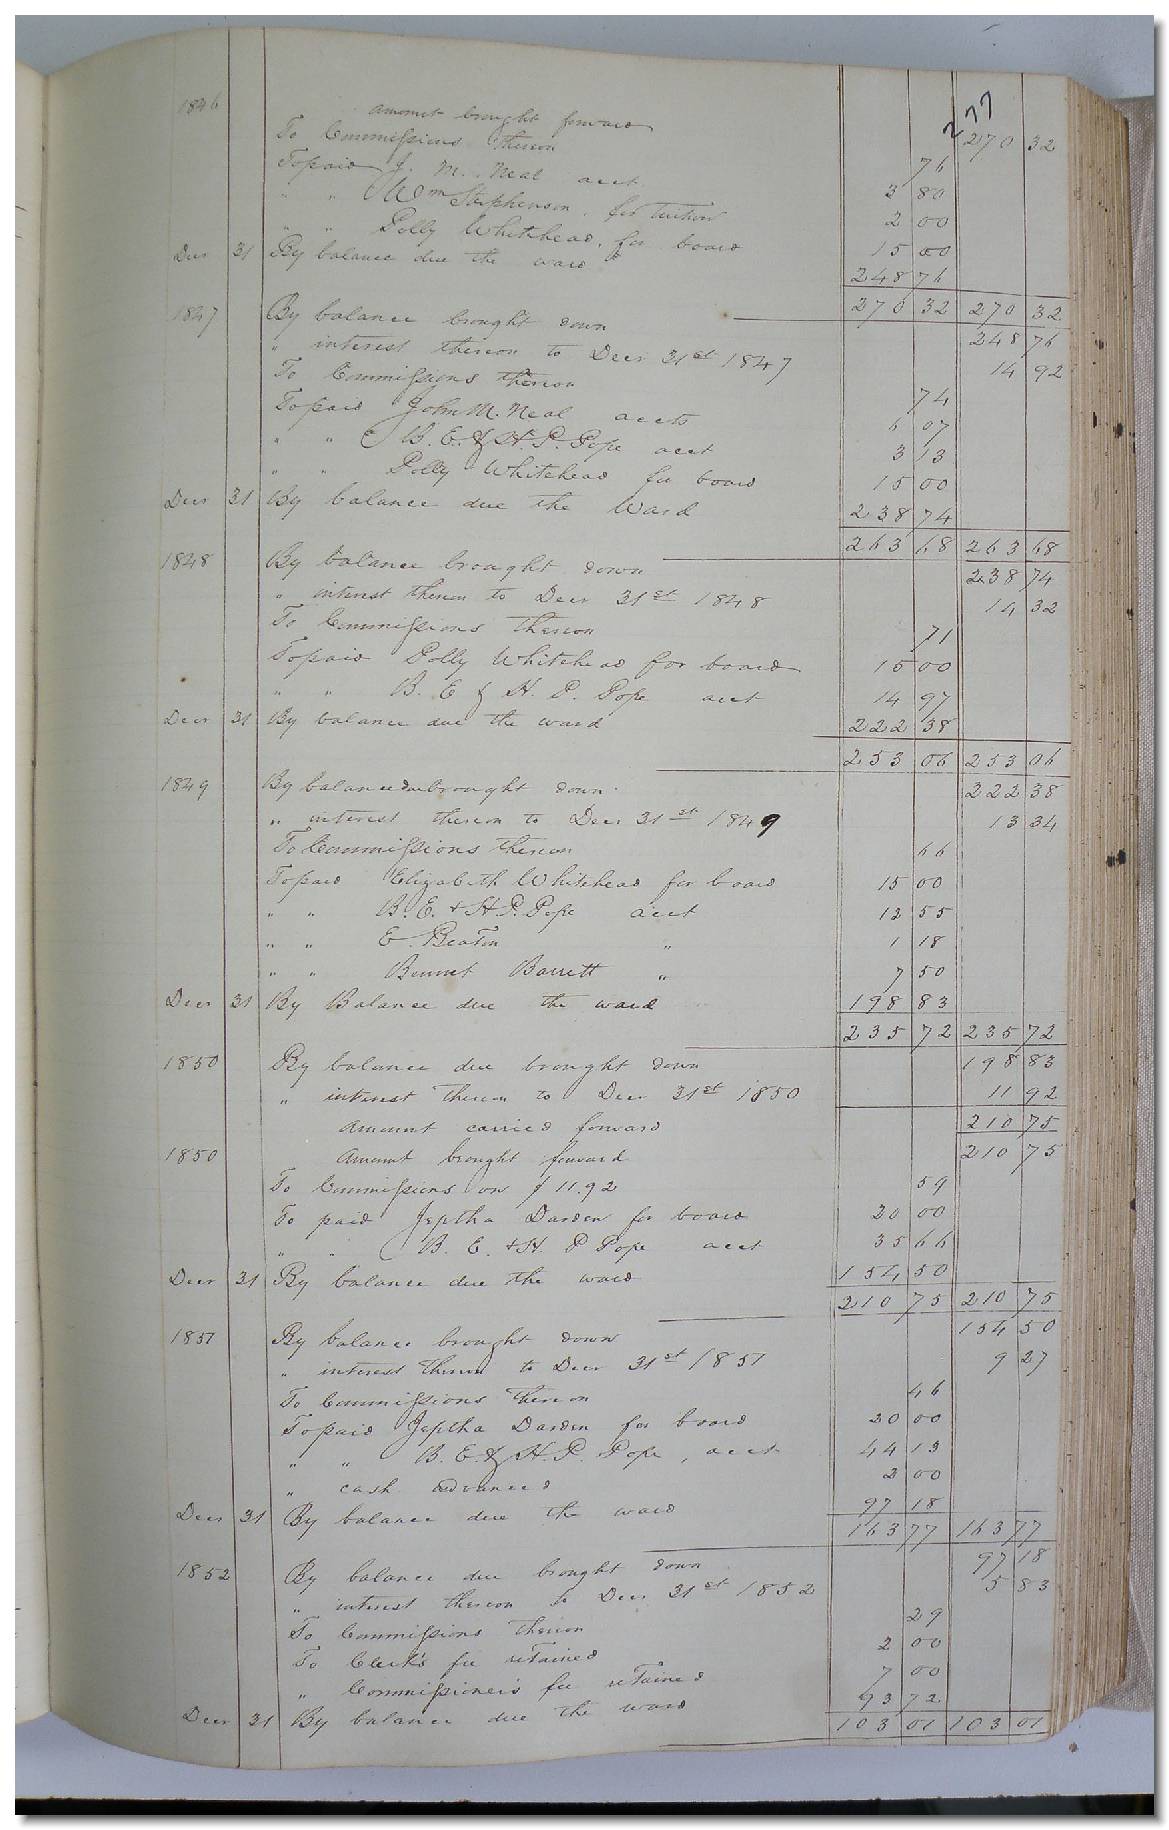 277
1846 amount brought forward 270 32
To Commissions thereon 76
To paid J. M. Neal acct 3 80
" " Wm Stephenson, for Tuition 2 00
" " Polly Whitehead, for board 15 00
Decr 31 By balance due the ward 248 76
270 32 270 32
1847 By balance brought down 248 76
" interest thereon to Decr 31st 1847 14 92
To Commissions thereon 74
To paid John M. Neal accts 6 07
" " B. E. & H. P. Pope acct 3 13
" " Polly Whitehead for board 15 00
Decr 31 By balance due the Ward 238 74
263 68 263 68
1848 By balance brought down 238 74
" interest thereon to Decr 31st 1848 14 32
To Commissions thereon 71
To paid Polly Whitehead for board 15 00
" " B. E & H. P. Pope acct 14 97
Decr 31 By balance due the ward 222 38
253 06 253 06
1849 By balance due brought down 222 38
" interest thereon to Decr 31st 1849 13 34
To Commissions thereon 66
To paid Elizabeth Whitehead for board 15 00
" " B. E. + H. P. Pope acct 12 55
" " E. Beaton " 1 18
" " Bennet Barrett " 7 50
Decr 31 By Balance due the ward 198 83
235 72 235 72
1850 By balance due brought down 198 83
" interest thereon to Decr 31st 1850 11 92
amount carried forward 210 75
1850 Amount brought forward 210 75
To Commissions on $ 11.92 59
To paid Jeptha Darden for board 20 00
" " B. E. + H. P Pope acct 35 66
Decr 31 By balance due the ward 154 50
210 75 210 75
1851 By balance brought down 154 50
" interest thereon to Decr 31st 1851 9 27
To Commissions thereon 46
To paid Jeptha Darden for board 20 00
" " B. E. & H. P. Pope, acct 44 13
" cash advanced 2 00
Decr 31 By balance due the ward 97 18
163 77 163 77
1852 By balance due brought down 97 18
" interest thereon to Decr 31st 1852 5 83
To Commissions thereon 29
To Clerk's fee retained 2 00
" Commissioner's fee retained 7 00
Decr 31 By balance due the ward 93 72
103 01 103 01